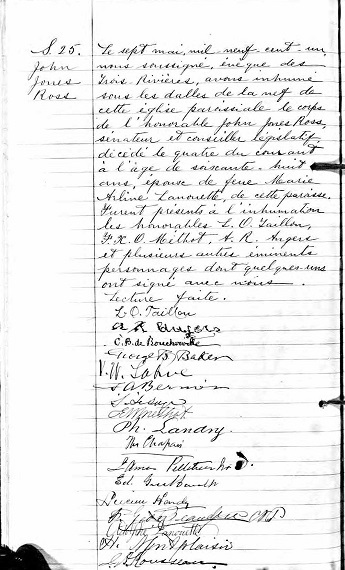 S. 25.
John
Jones
Ross
Le sept mai, mil-neuf-cent-un,
nous soussigné, évêque des
Trois-Rivières, avons inhumé
sous les dalles de la nef de
cette église paroissiale le corps
de l'honorable John Jones Ross,
sénateur et conseiller législatif,
décédé le quatre du courant
à l'âge de soixante-huit
ans, époux de feue Marie
Arline Lanouette, de cette paroisse.
Furent présents à l'inhumation
les honorables L. O. Taillon,
F. X. O. Méthot, A. R. Angers
et plusieurs autres éminents
personnages dont quelques-uns
ont signé avec nous.
Lecture faite.
L. O. Taillon
A R Angers
C. B. de Boucherville
George B. Baker
Ph. Landry
Ths Chapais
Pelletier
H. Montplaisir
Rousseau